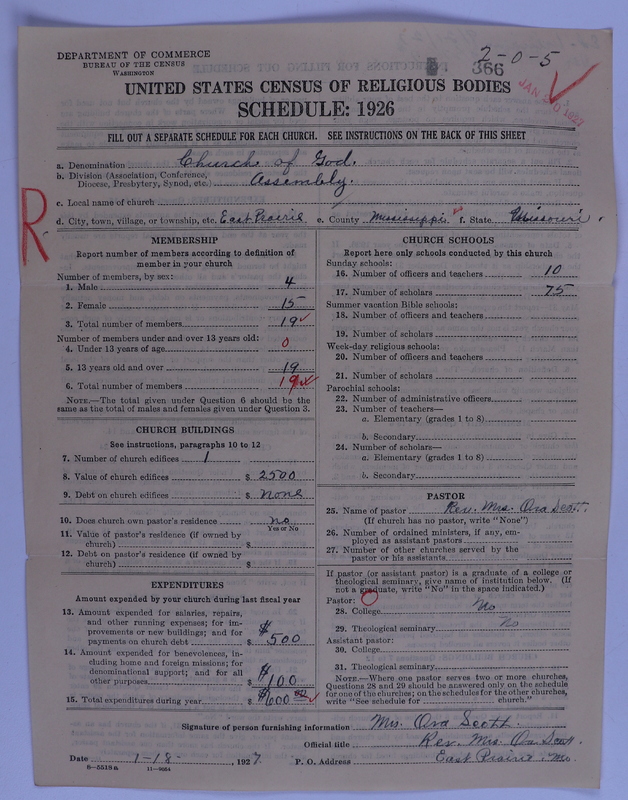 DEPARTMENT OF COMMERCE
BUREAU OF THE CENSUS
WASHINGTON
2-0-5
366
JAN 20 1927
UNITED STATES CENSUS OF RELIGIOUS BODIES
SCHEDULE: 1926
FILL OUT A SEPARATE SCHEDULE FOR EACH CHURCH. SEE INSTRUCTIONS ON THE BACK OF THIS SHEET
a. Denomination Church of God.
b. Division (Association, Conference, Diocese, Presbytery, Synod, etc.) Assembly.
c. Local name of church
R
d. City, town, village, or township, etc. East Prairie e. County Mississippi f. State Missouri.
MEMBERSHIP
Report number of members according to definition of
member in your church
Number of members, by sex:
1. Male 4
2. Female 15
3. Total number of members 19
Number of members under and over 13 years old:
4. Under 13 years of age 0
5. 13 years old and over 19
6. Total number of members 19
NOTE.—The total given under Question 6 should be
same as the total of males and females given under Question 3.
CHURCH BUILDINGS
See instructions, paragraphs 10 to 12
7. Number of church edifices 1
8. Value of church edifices $ 2500
9. Debt on church edifices $ none
10. Does church own pastor's residence no
Yes or No
11. Value of pastor's residence (if owned by
church) $
12. Debt on pastor's residence (if owned by
church) $
EXPENDITURES
Amount expended by your church during last fiscal year
13. Amount expended for salaries, repairs,
and other running expenses; for im-
provements or new buildings; and for
payments on church debt $ $500
14. Amount expended for benevolences, in-
cluding home and foreign missions; for
denominational support; and for all
other purposes $ $100
15. Total expenditures during year $ $600 00
CHURCH SCHOOLS
Report here only schools conducted by this church
Sunday schools:
16. Number of officers and teachers 10
17. Number of scholars 75
Summer vacation Bible schools:
18. Number of officers and teachers
19. Number of scholars
Week-day religious schools:
20. Number of officers and teachers
21. Number of scholars
Parochial schools:
22. Number of administrative officers
23. Number of teachers—
a. Elementary (grades 1 to 8)
b. Secondary
24. Number of scholars—
a. Elementary (grades 1 to 8)
b. Secondary
PASTOR
25. Name of pastor Rev. Mrs. Ora Scott.
(If church has no pastor, write "None")
26. Number of ordained ministers, if any, em-
ployed as assistant pastors
27. Number of other churches served by the
pastor or his assistants
If pastor (or assistant pastor) is a graduate of a college or
theological seminary, give name of institution below. (If
not a graduate, write "No" in the space indicated.)
Pastor:
28. College No
29. Theological seminary No
Assistant pastor:
30. College
31. Theological seminary
NOTE.—Where one pastor serves two or more churches,
Questions 28 and 29 should be answered only on the schedule
for one of the churches; on the schedules for the other churches,
write "See schedule for church."
Signature of person furnishing information Mrs. Ora Scott.
Official title Rev. Mrs. Ora Scott.
Date 1-18-, 1927. P. O. Address East Prairie. Mo.
8—5518a 11—9664